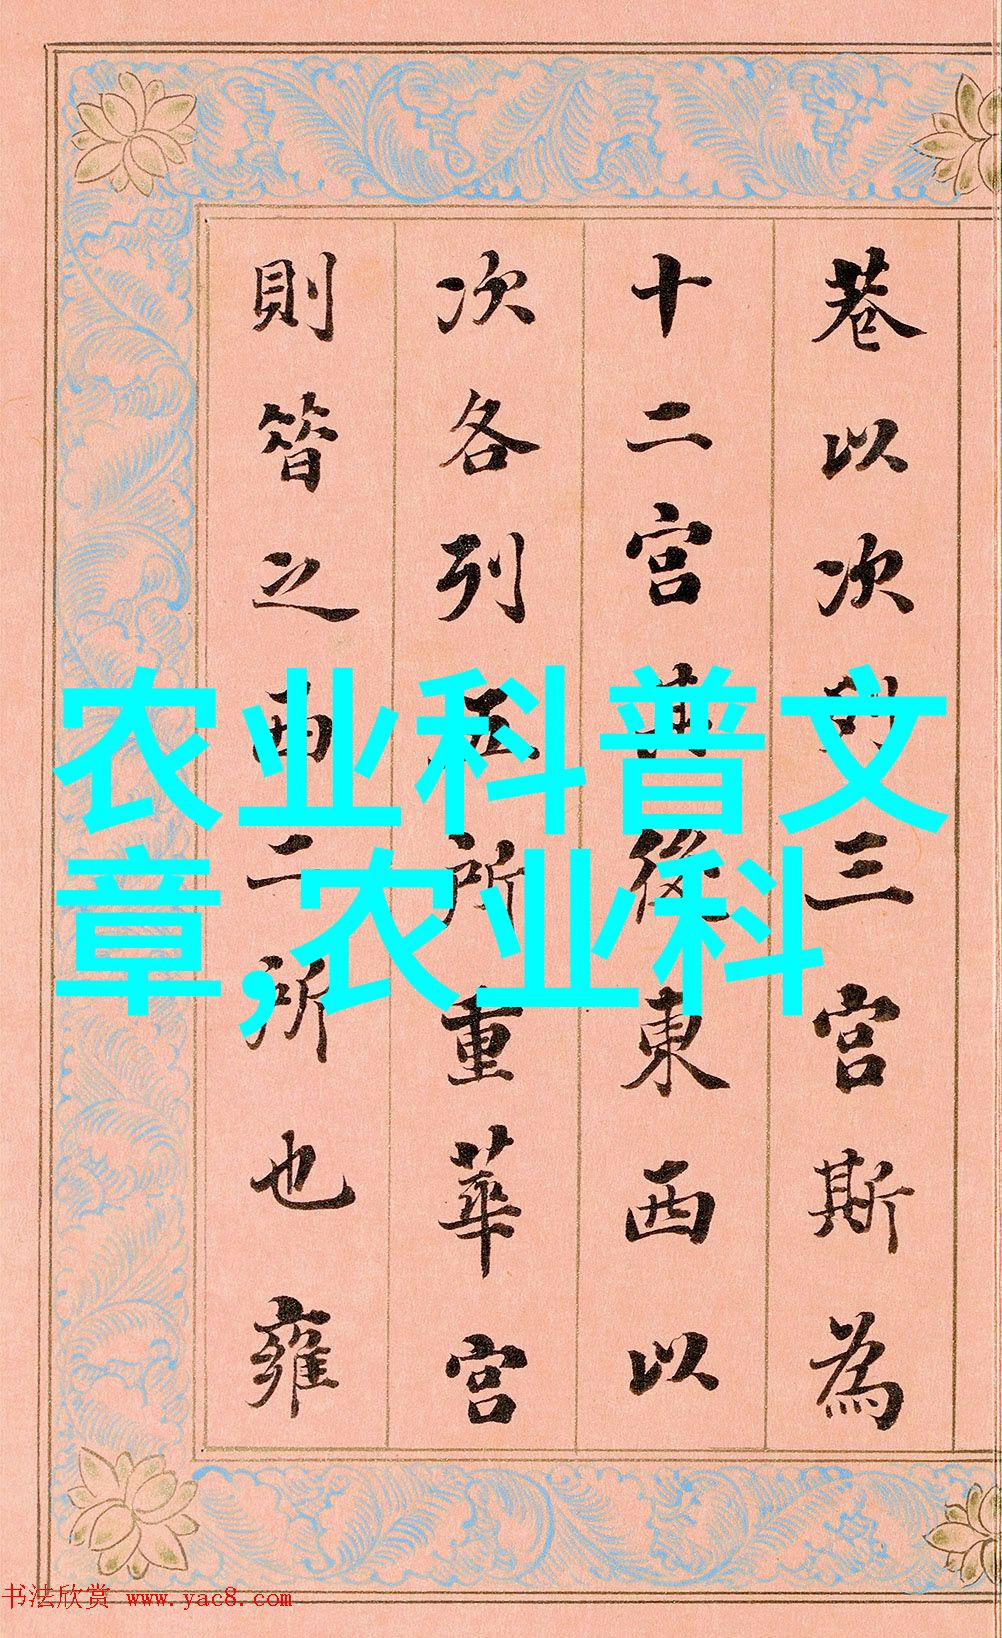 巷以次列三宮斯為
十二宮其後東西以
次各列五所重華宮
則昔之西二所也雍
农业科普文
章,农业科
书法欣赏 www.yac8.com